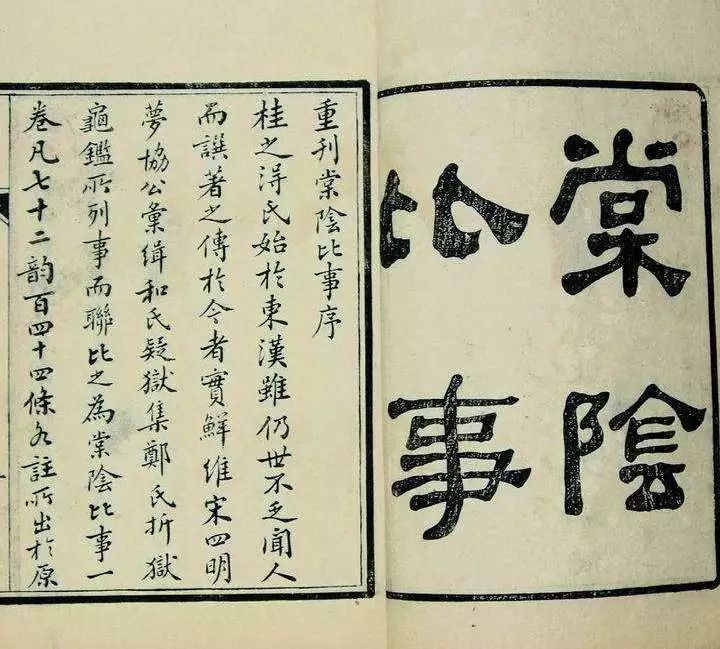 棠陰
比事
重刊棠陰比事序
桂之淂氏始於東漢雖仍世不乏聞人
而譔著之傳於今者實鮮維宋四明
夢協公彙緝和氏疑獄集鄭氏折獄
龜鑑所列事而聯比之為棠陰比事一
卷凡七十二韵百四十四條各註所出於原